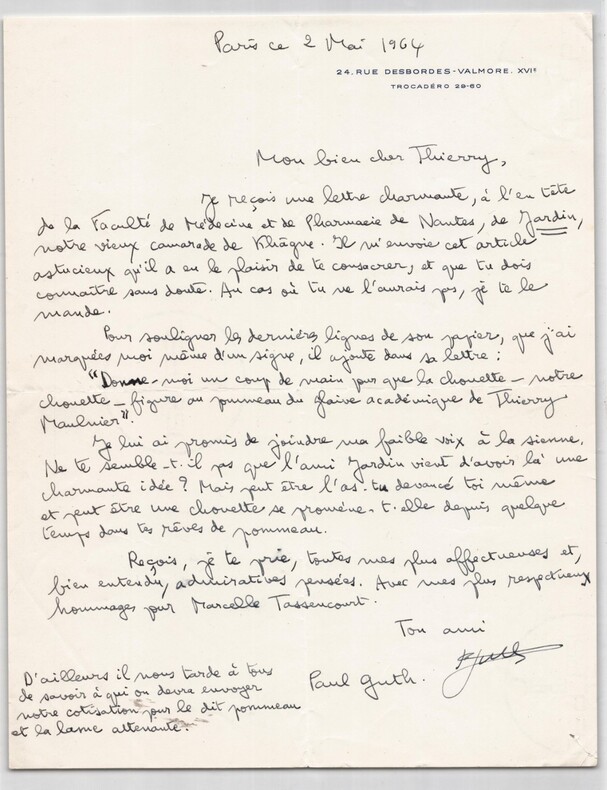 Paris ce 2 Mai 1964
24, RUE DESBORDES-VALMORE. XVIᵉ
TROCADÉRO 29-60
Mon bien cher Thierry,
Je reçois une lettre charmante, à l'en tête
de la Faculté de Médecine et de Pharmacie de Nantes, de Jardin,
notre vieux camarade de Khâgne. Il m'envoie cet article
astucieux qu'il a eu le plaisir de te consacrer, et que tu dois
connaître sans doute. Au cas où tu ne l'aurais pas, je te le
mande.
Pour souligner les dernières lignes de son papier, que j'ai
marquées moi même d'un signe, il ajoute dans sa lettre :
"Donne-moi un coup de main pour que la chouette – notre
chouette – figure au pommeau du glaive académique de Thierry
Maulnier".
Je lui ai promis de joindre ma faible voix à la sienne.
Ne te semble-t-il pas que l'ami Jardin vient d'avoir là une
charmante idée ? Mais peut être l'as-tu devancé toi même
et peut être une chouette se promène-t-elle depuis quelque
temps dans tes rêves de pommeau.
Reçois, je te prie, toutes mes plus affectueuses et,
bien entendu, admiratives pensées. Avec mes plus respectueux
hommages pour Marcelle Tassencourt.
Ton ami
Paul Guth.
D'ailleurs il nous tarde à tous
de savoir à qui on devra envoyer
notre cotisation pour le dit pommeau
et la lame attenante.